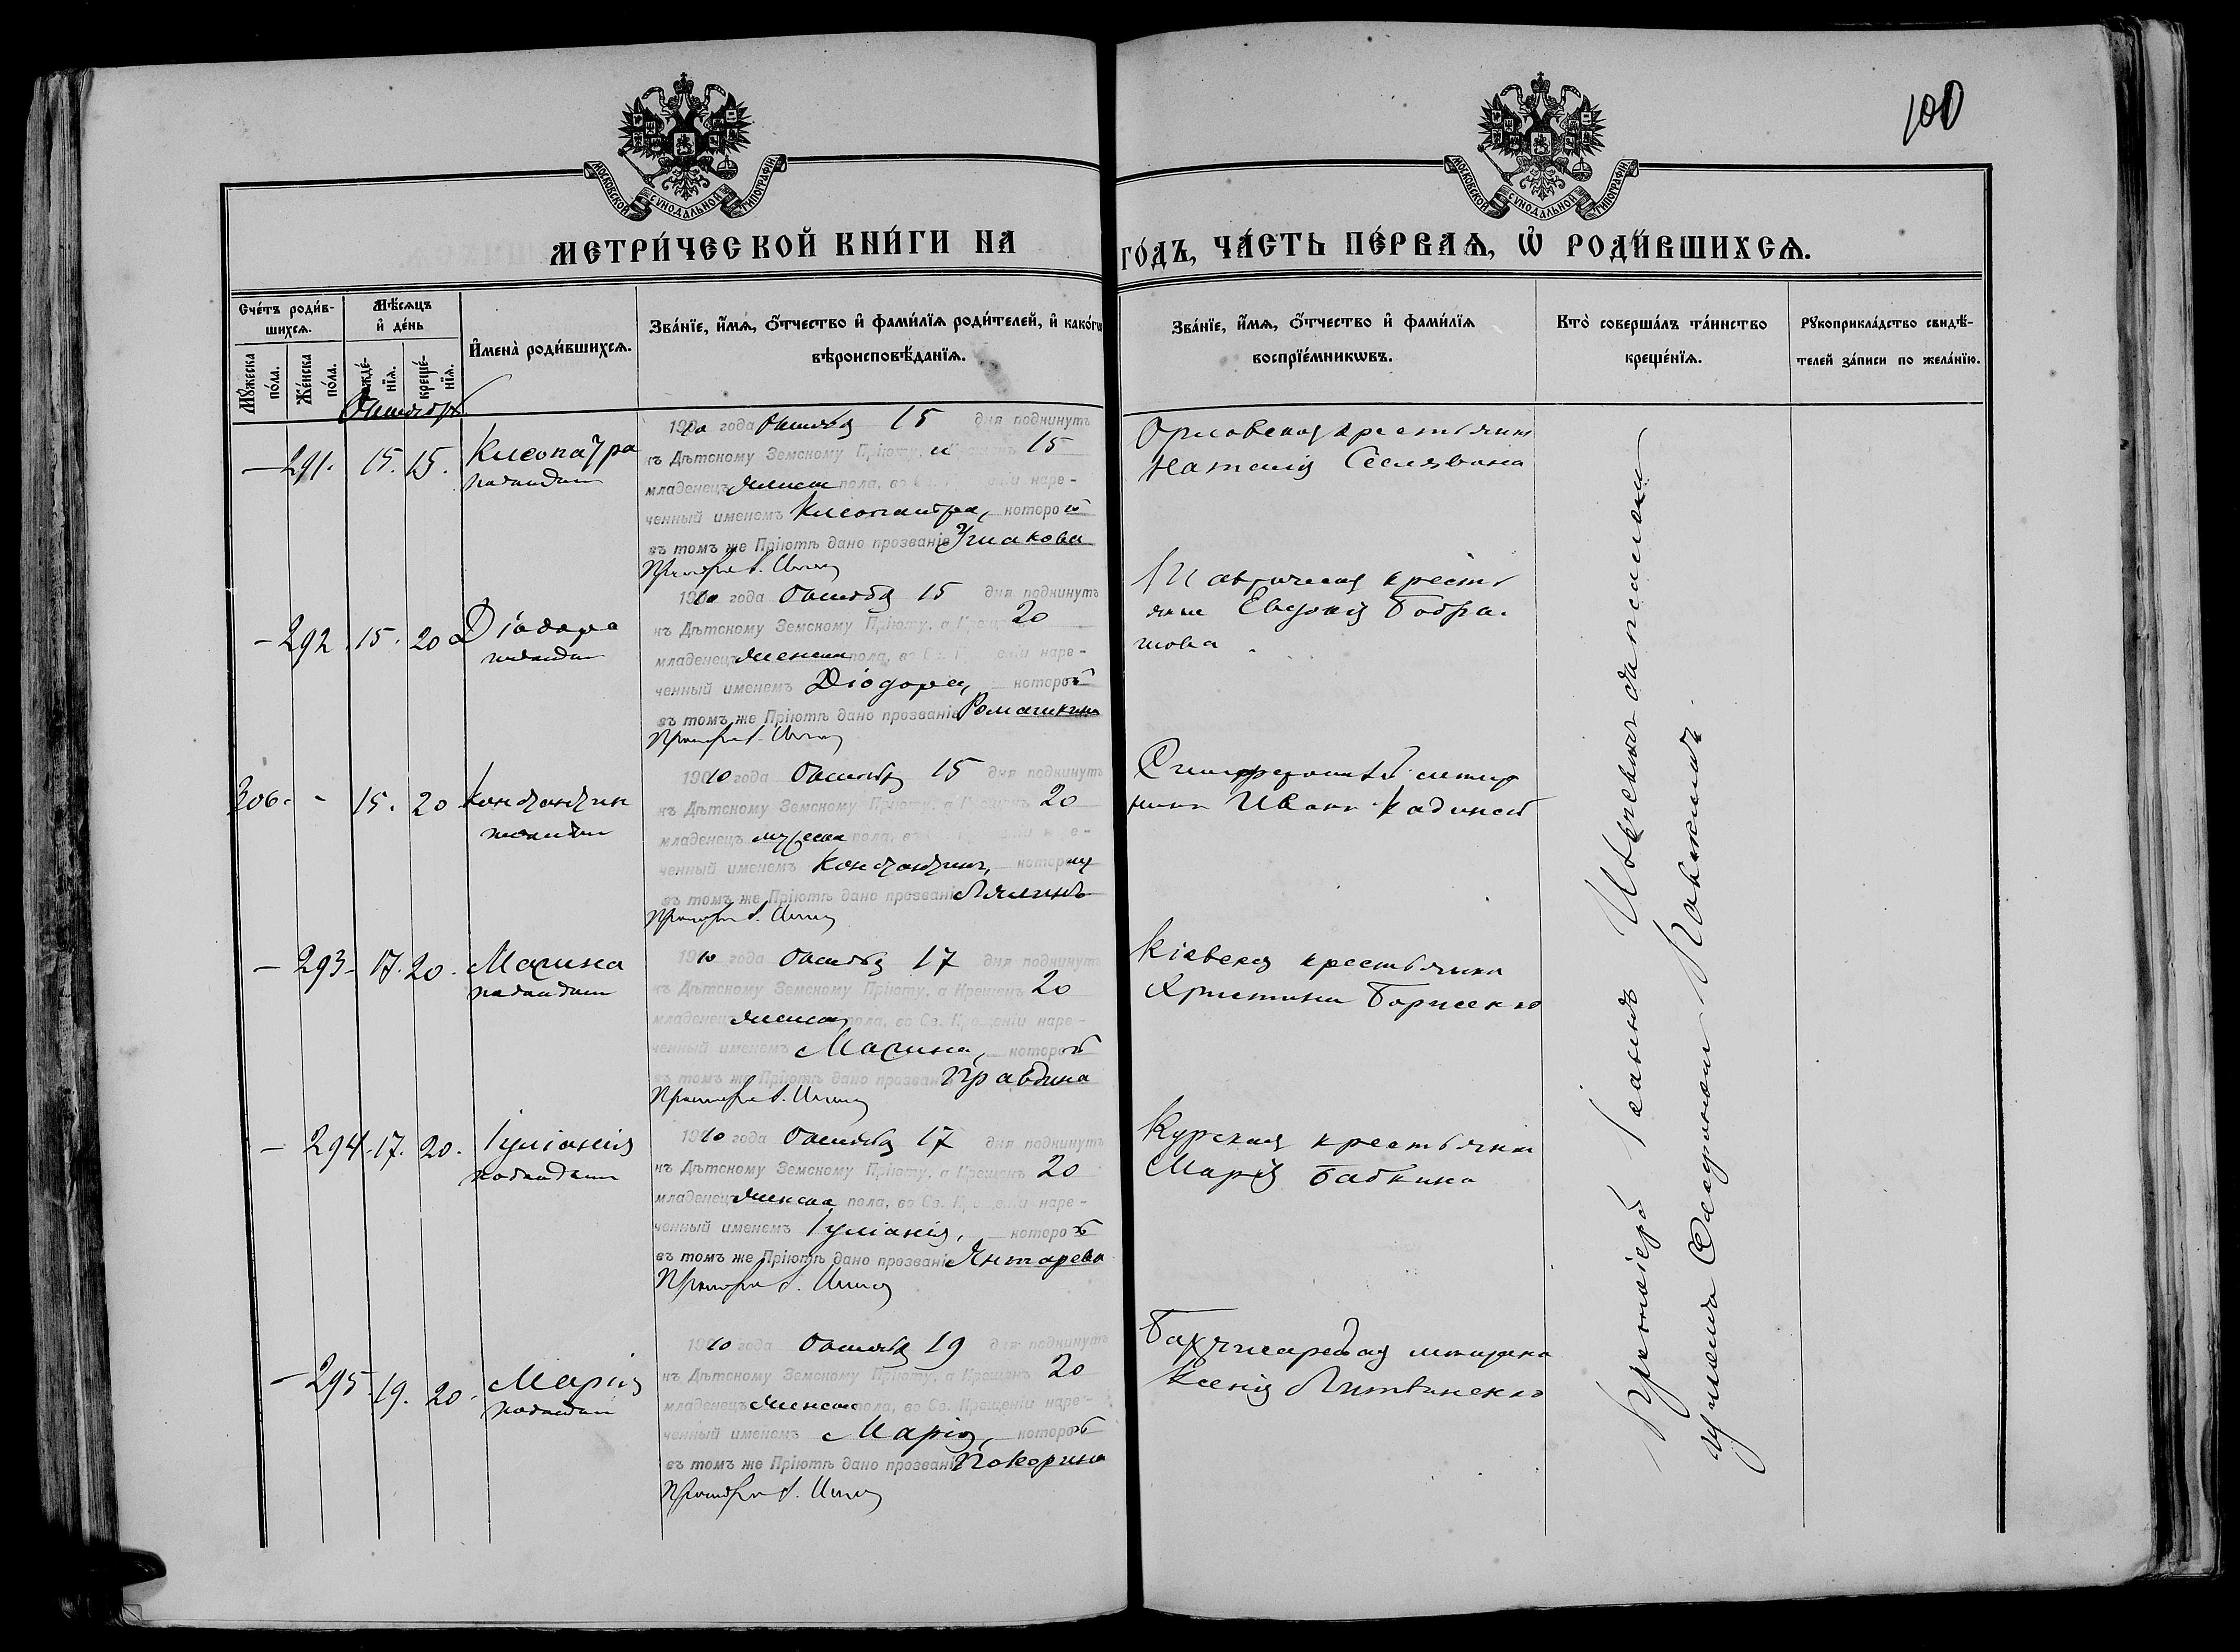 100
МОСКОВСКОЙ СѴНОДАЛЬНОЙ ТИПОГРАФІИ
МОСКОВСКОЙ СѴНОДАЛЬНОЙ ТИПОГРАФІИ
МЕТРИ́ЧЕСКОЙ КНИ́ГИ НА ГО́ДЪ, ЧА́СТЬ ПЕ́РВАѦ, Ѿ РОДИ́ВШИХСѦ.
Сче́тъ роди́в-
шихсѧ.
Мꙋ́жеска
по́ла.
Же́нска
по́ла.
Мѣ́сѧцъ
и҆ де́нь
рожде́-
нїѧ.
креще́-
нїѧ.
И҆мена̀ роди́вшихсѧ.
Зва́нїе, и҆́мѧ, ѻ҆́тчество и҆ фами́лїѧ роди́телей, и҆ како́гѡ
вѣроисповѣ́данїѧ.
Зва́нїе, и҆́мѧ, ѻ҆́тчество и҆ фами́лїѧ
воспрїе́мникѡвъ.
Кто̀ соверша́лъ та́инство
креще́нїѧ.
Рꙋкоприкла́дство свидѣ́-
телей за́писи по жела́нїю.
Октябрь
— 291. 15. 15. Клеопатра
1910 года Октября 15 дня подкинутъ
къ Дѣтскому Земскому Пріюту, 15
младенецъ женска пола, во наре-
ченный именемъ Клеопатра, которой
въ томъ же Пріютѣ дано прозваніе Ушакова
Орловская крестьянка
Наталія
— 292 15. 20 Діодора
1910 года Октября 15 дня подкинутъ
къ Дѣтскому Земскому Пріюту, а Крещенъ 20
младенецъ женска пола, во Св. Крещеніи наре-
ченный именемъ Діодора, которой
въ томъ же Пріютѣ дано прозваніе Ромашкина
Таврическая кресть
янка Евдокія Бобра-
шова
306. - 15. 20 Константин
1910 года Октября 15 дня подкинутъ
къ Дѣтскому Земскому Пріюту, а Крещенъ 20
младенецъ мужеска пола, во
ченный именемъ Константинъ, которому
въ томъ же Пріютѣ дано прозваніе Лялинъ
Иванъ
— 293 - 17. 20. Марина
1910 года Октября 17 дня подкинутъ
къ Дѣтскому Земскому Пріюту, а Крещенъ 20
младенецъ женска пола, во Св. Крещеніи наре-
ченный именемъ Марина, которой
въ томъ же Пріютѣ дано прозваніе Правдина
Кіевская крестьянка
Христина Борисенко
— 294. 17. 20. Іуліанія
1910 года Октября 17 дня подкинутъ
къ Дѣтскому Земскому Пріюту, а Крещенъ 20
младенецъ женска пола, во Св. Крещеніи наре-
ченный именемъ Іуліанія, которой
въ томъ же Пріютѣ дано прозваніе Янтарева
Курская крестьянка
Марія Бабкина
— 295. 19. 20. Марія
1910 года Октября 19 дня подкинутъ
къ Дѣтскому Земскому Пріюту, а Крещенъ 20
младенецъ женска пола, во Св. Крещеніи наре-
ченный именемъ Марія, которой
въ томъ же Пріютѣ дано прозваніе Покорина
Бахчисарайская мѣщанка
Ксенія Литвиненко
Протоіерей Іоаннъ